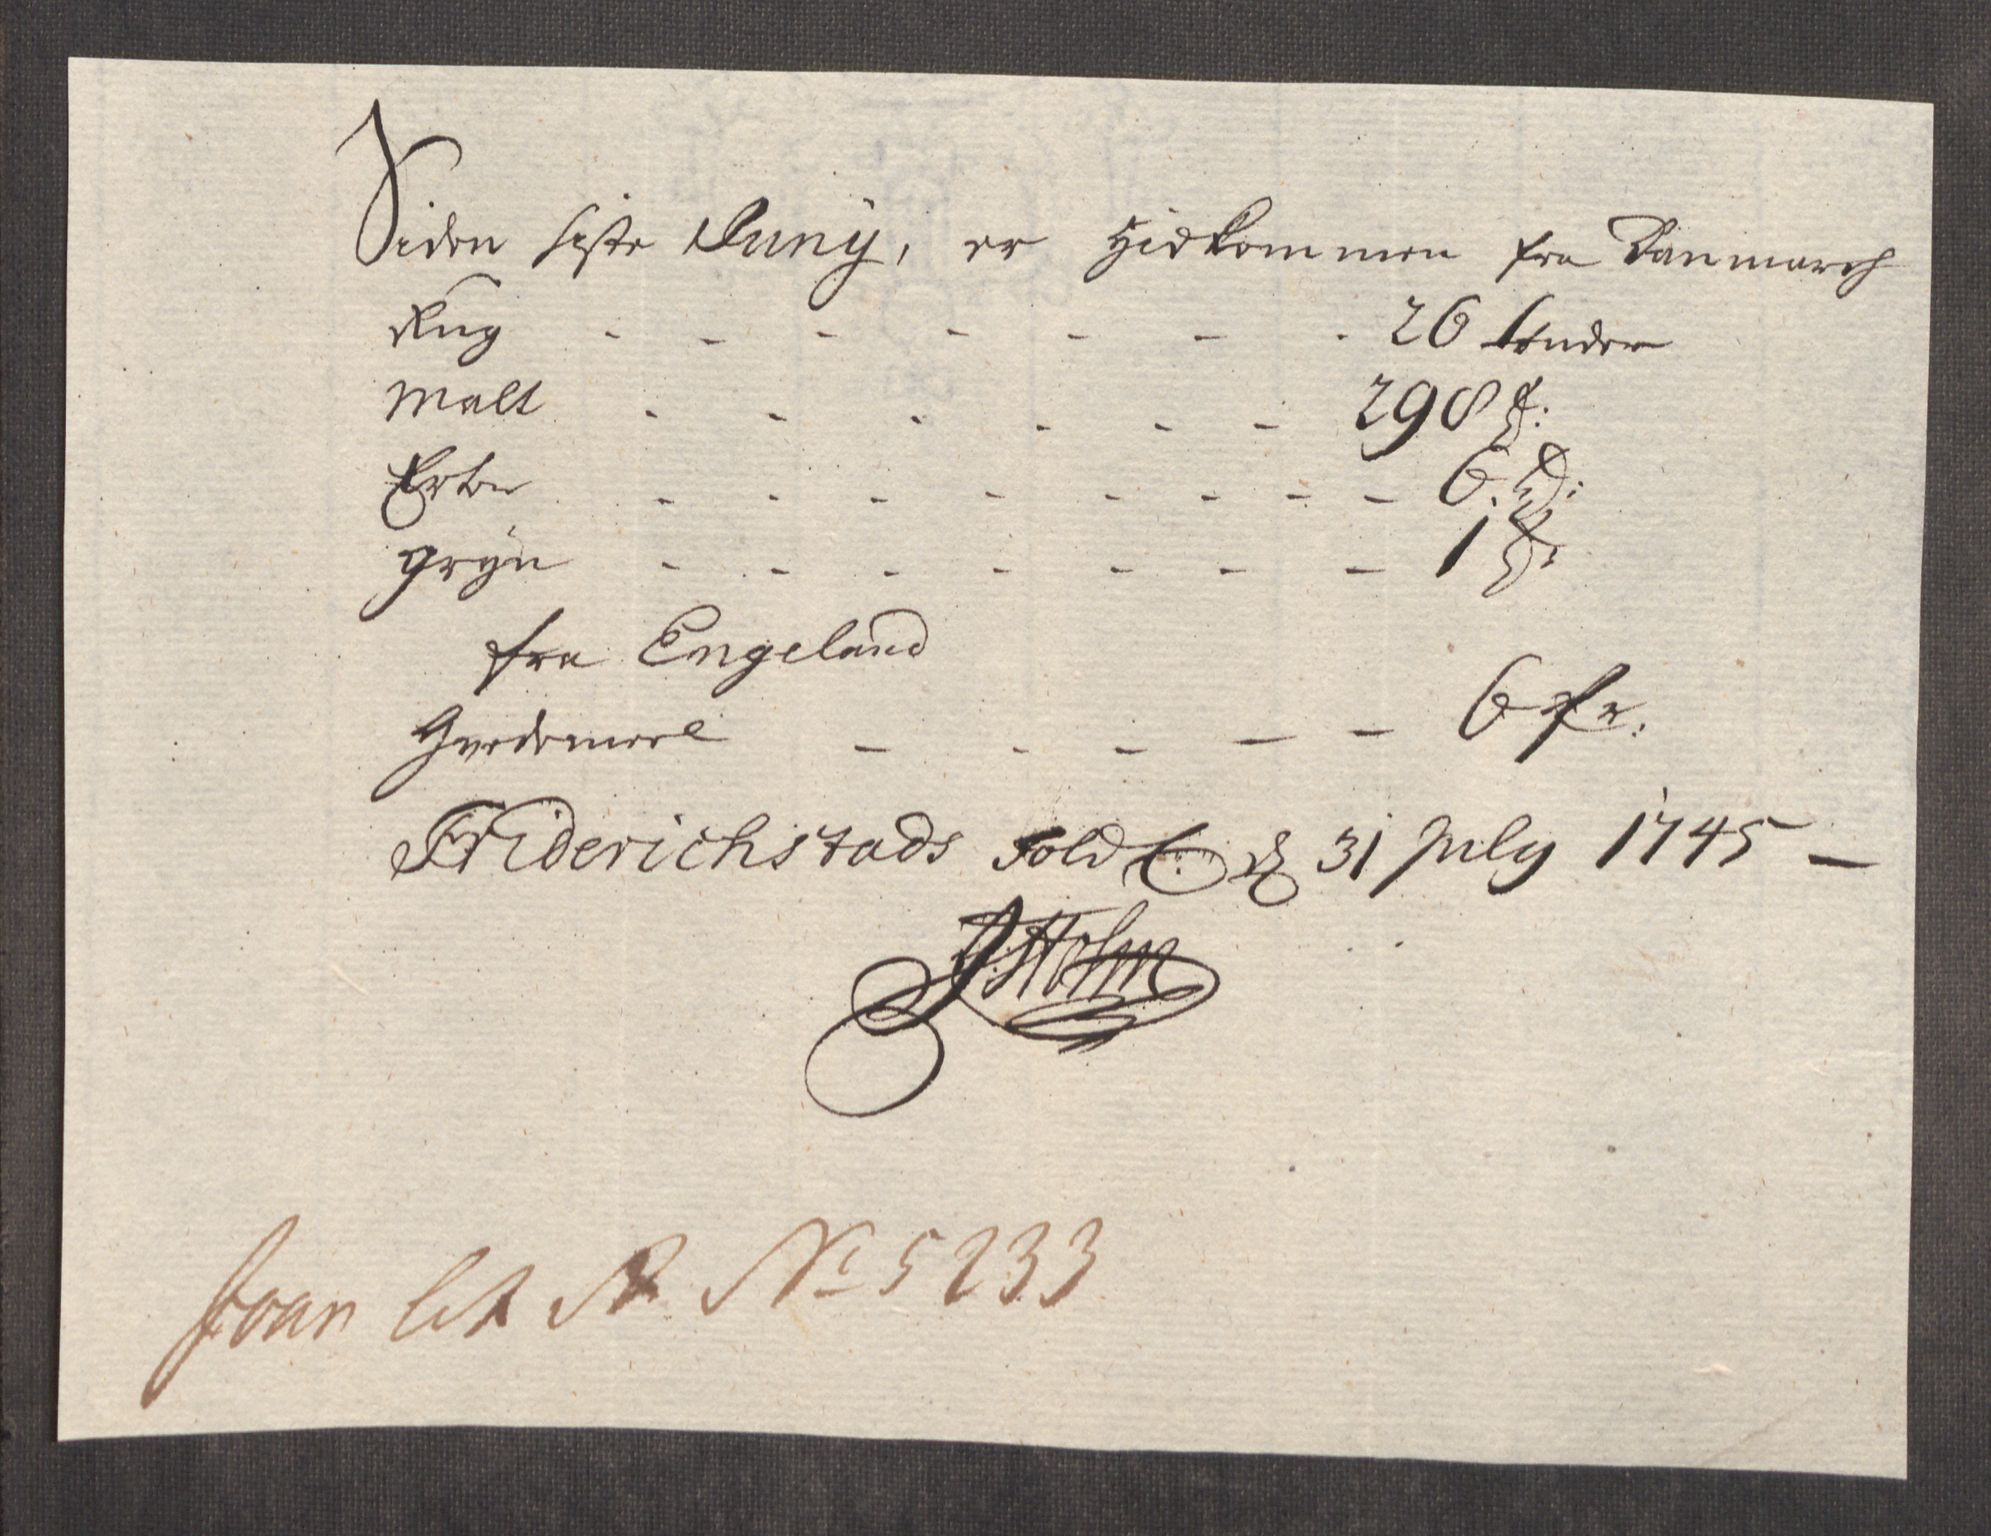 Siden siste Juny, er hidkommen fra Danmarch
Rug - - - - - - - 26 tønder
Malt - - - - - - 298
Erter - - - - - - - - 6
gryn - - - - - - - 1
fra Engeland
Hvedemeel - - - - - 6
Friderichstads Told C: d 31 July 1745 -
J:Holm
N 5233